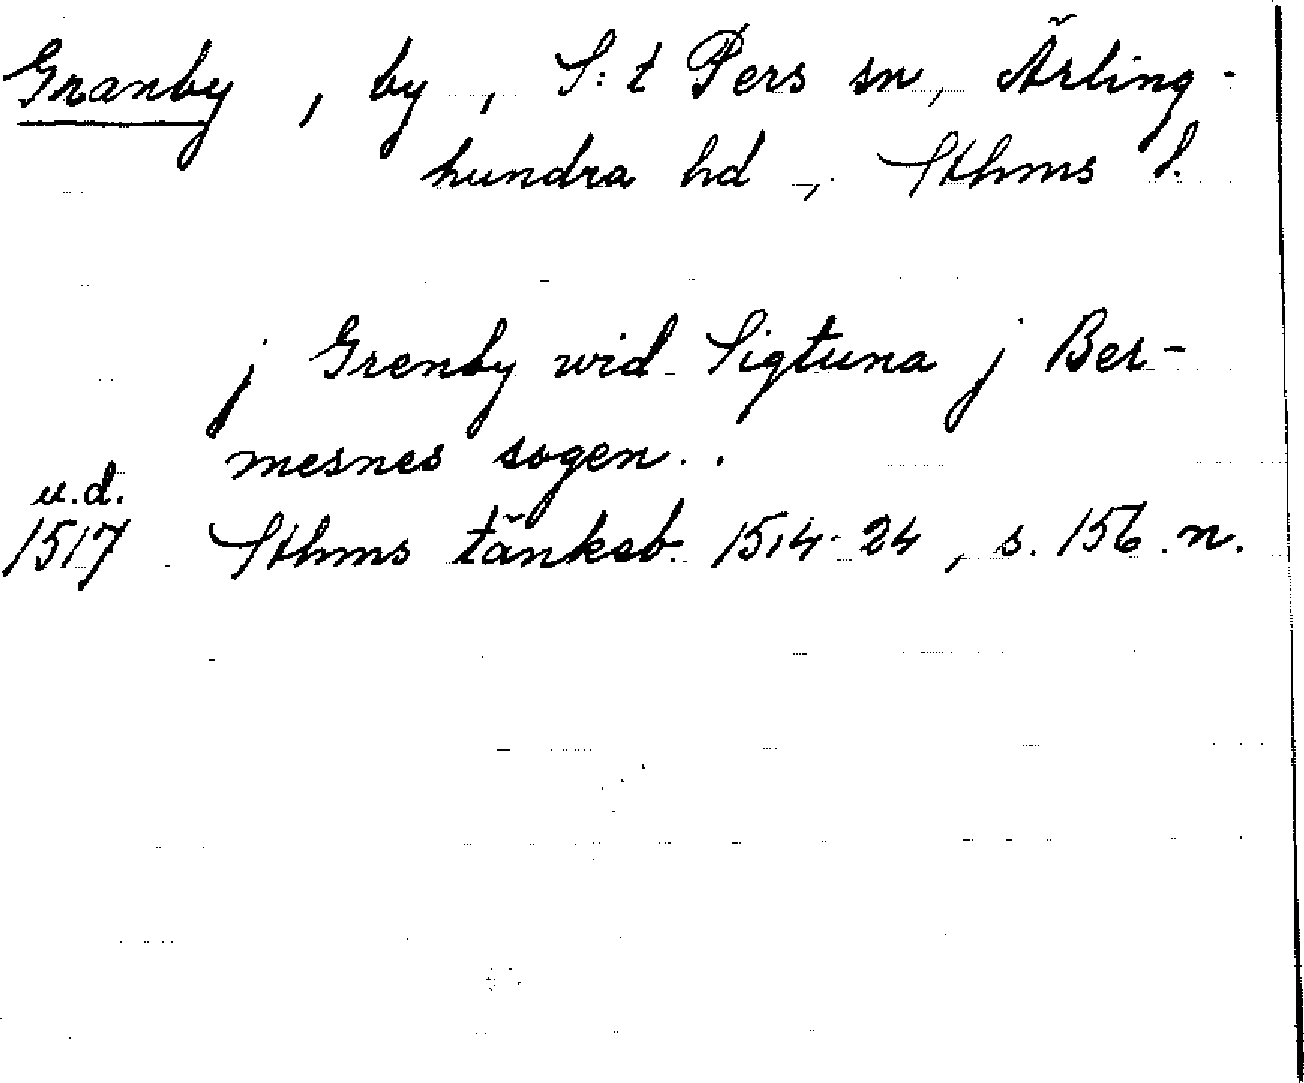 Granby, by, S:t Pers sn, Ärling-
hundra hd, Sthms l.
j Grenby wid Sigtuna j Ber-
mesnes sogen..
u.d.
1517 Sthms tänkeb. 1514-24, s. 156 n.